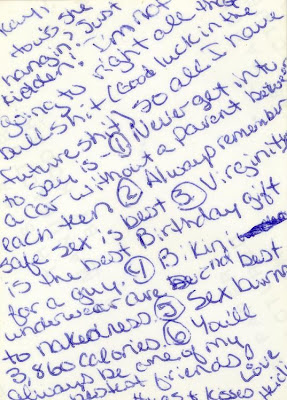 Kay,
How's she
hangin'? Just
kidden! I'm not
going to right all that
bullshit (Good luck in the
future shit) so all I have
to say is - ① Never get into
a car without a parent between
each ker ② Always remember
safe sex is best ③ Virginity
is the best Birthday gift
for a guy. ④ Bikini
underwear are second best
to nakedness. ⑤ Sex burns
3,860 calories. ⑥ You'll
always be one of my
bestest friends,
Love